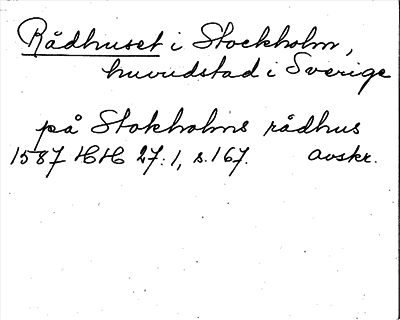 Rådhuset i Stockholm,
huvudstad i Sverige
på Stokholms rådhus
1587 HH 27:1, s. 167. avskr.